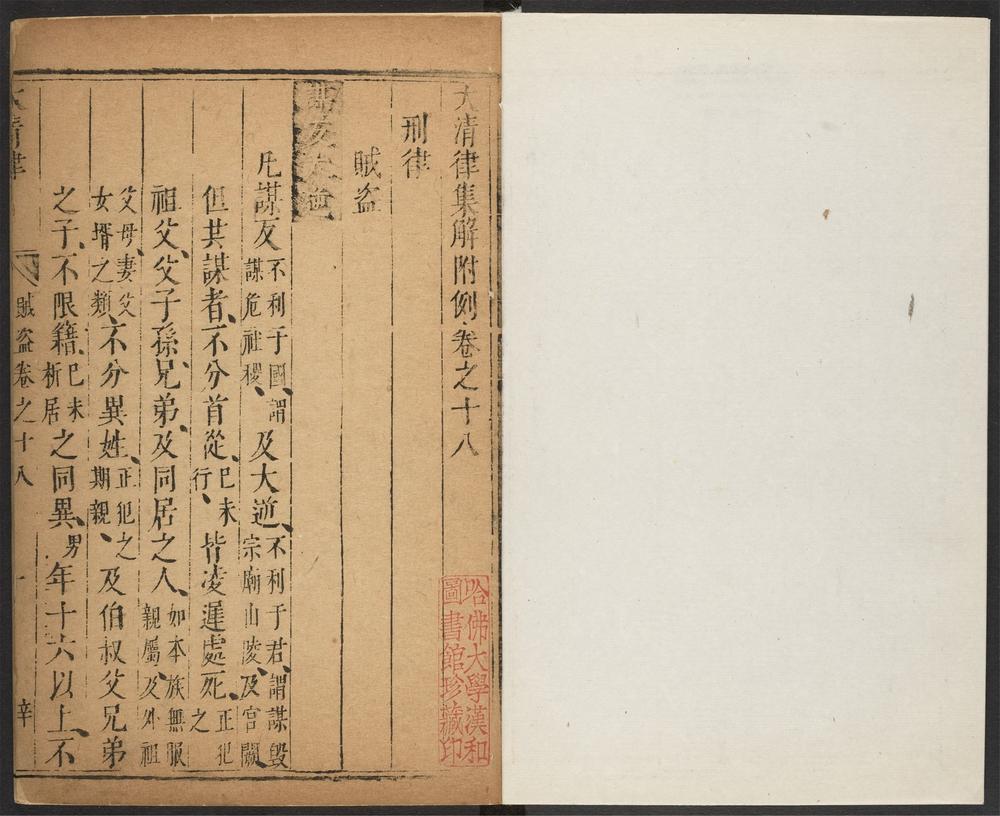 大清律集解附例卷之十八
刑律
賊盜
謀反大逆
凡謀反不利于國謂謀危社稷及大逆不利于君謂謀毀宗廟山陵及宮闕
但共謀者不分首從已未行皆凌遲處死正犯之
祖父父子孫兄弟及同居之人如本族無服親屬及外祖
父母妻父女壻之類不分異姓正犯之期親及伯叔父兄弟
之子不限籍已未析居之同異男年十六以上不
大清律 賊盜卷之十八 一 辛
哈佛大學漢和
圖書館珍藏印